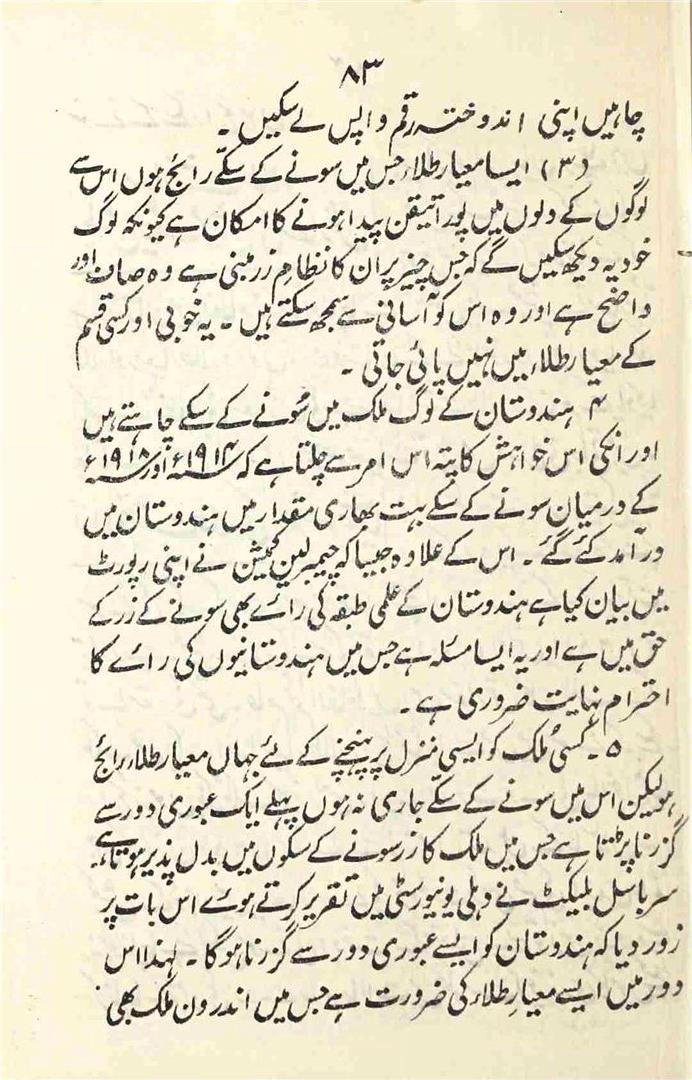 ۸۳
چاہیں اپنی اندوختہ رقم واپس لے سکیں ۔
(۳) ایسا معیار طلاء جس میں سونے کے سکّے رائج ہوں اس سے
لوگوں کے دلوں میں پورا تیقن پیدا ہونے کا امکان ہے کیونکہ لوگ
خود یہ دیکھ سکیں گے کہ جس چیز پر ان کا نظامِ زر مبنی ہے وہ صاف اور
واضح ہے اور وہ اس کو آسانی سے سمجھ سکتے ہیں ۔ یہ خوبی اور کسی قسم
کے معیار طلاء میں نہیں پائی جاتی ۔
۴ ہندوستان کے لوگ ملک میں سونے کے سکے چاہتے ہیں
اور انکی اس خواہش کا پتہ اس امر سے چلتا ہے کہ سنہ ۱۹۱۴ء اور سنہ ۱۹۱۸ء
کے درمیان سونے کے سکے بہت بھاری مقدار میں ہندوستان میں
درآمد کئے گئے ۔ اس کے علاوہ جیسا کہ چیمبرلین کمیشن نے اپنی رپورٹ
میں بیان کیا ہے ہندوستان کے علمی طبقہ کی رائے بھی سونے کے زر کے
حق میں ہے اور یہ ایسا مسئلہ ہے جس میں ہندوستانیوں کی رائے کا
احترام نہایت ضروری ہے ۔
۵ ۔ کسی ملک کو ایسی منزل پر پہنچنے کے لئے جہاں معیار طلاء رائج
ہو لیکن اس میں سونے کے سکے جاری نہ ہوں پہلے ایک عبوری دور سے
گزرنا پڑتا ہے جس میں ملک کا زر سونے کے سکوں میں بدل پذیر ہوتا ہے۔
سر باسل بلیکٹ نے دہلی یونیورسٹی میں تقریر کرتے ہوئے اس بات پر
زور دیا کہ ہندوستان کو ایسے عبوری دور سے گزرنا ہوگا ۔ لہذا اس
دور میں ایسے معیارِ طلاء کی ضرورت ہے جس میں اندرون ملک بھی